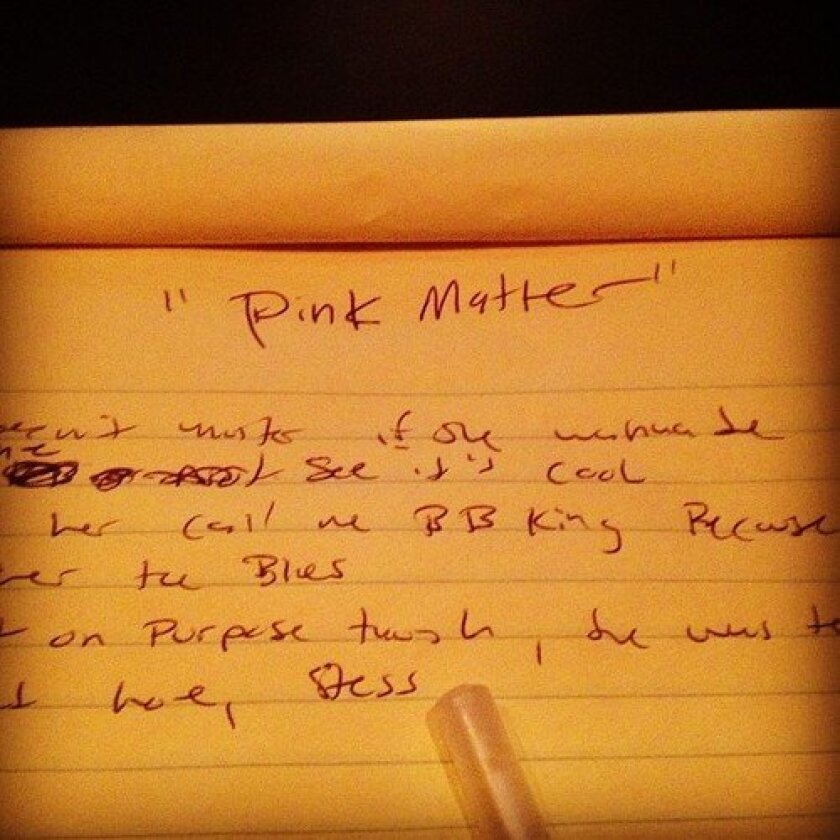 "Pink Matter"
if she wanna be
See it's cool
her call me BB King Because
her the Blues
on Purpose though, she was to
hoe, Stess